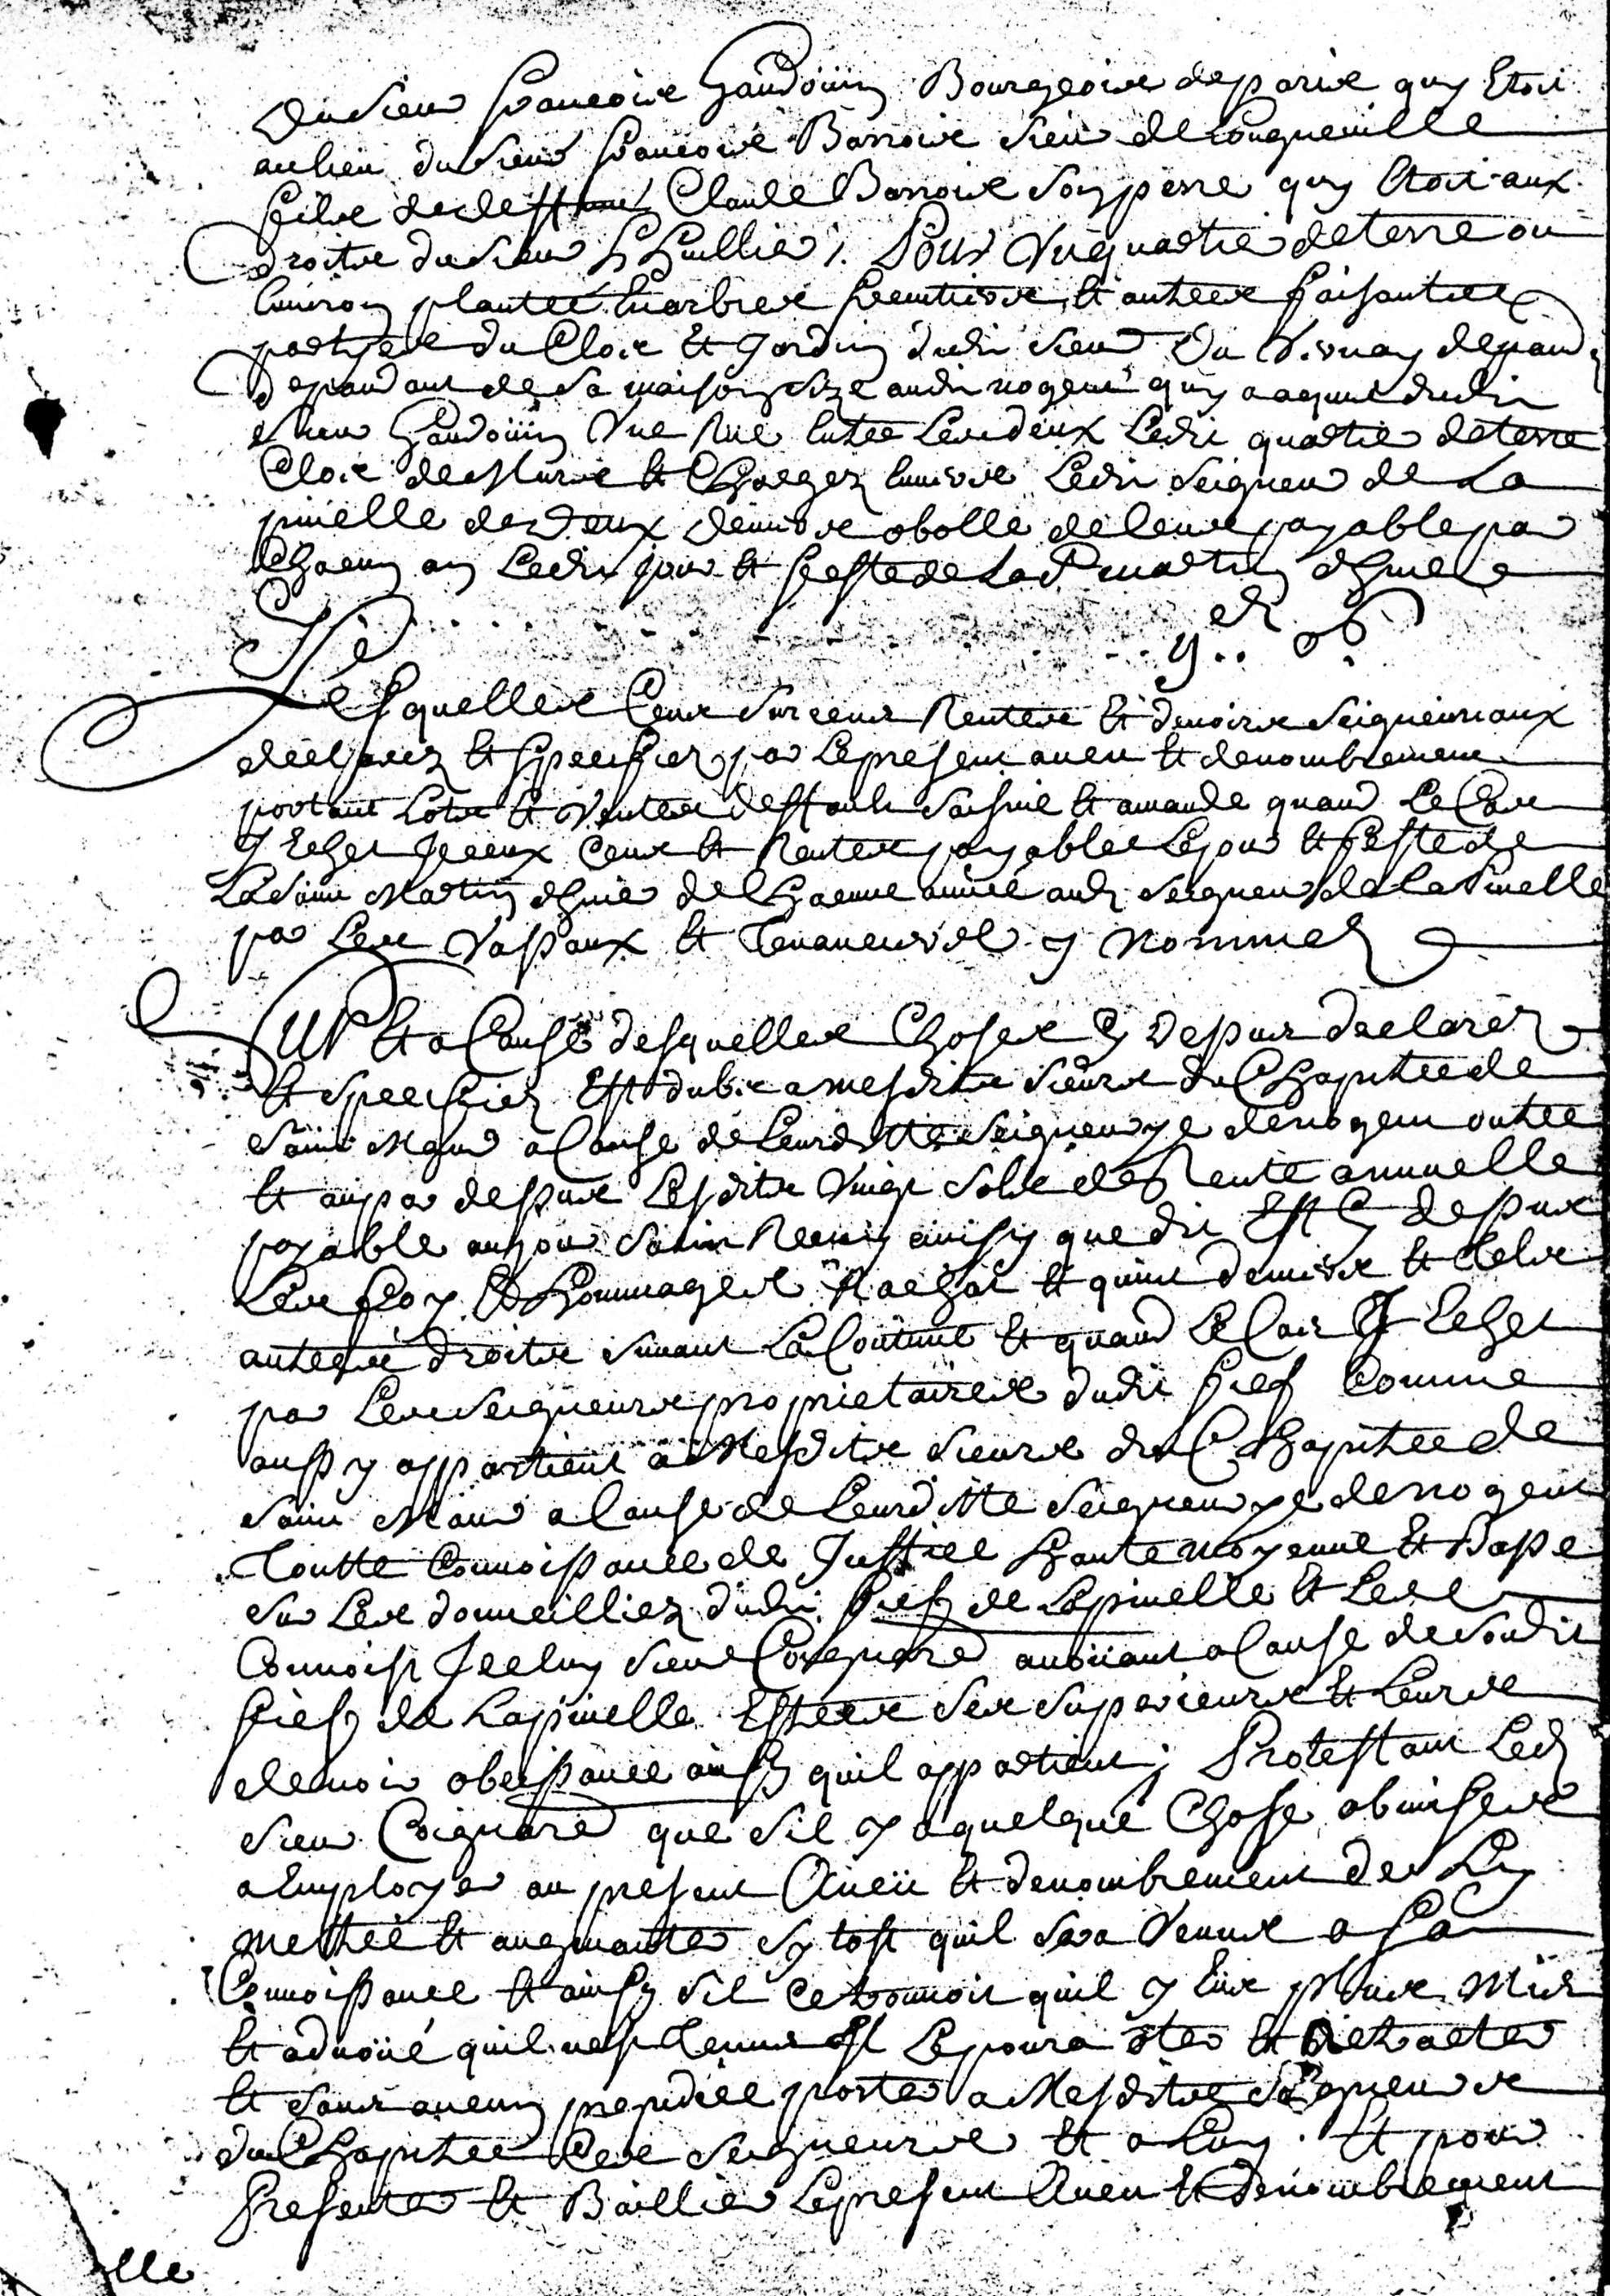 Du sieur francois Gaudoüin Bourgeois de paris quy Etoit
au lieu du sieur francois Barrois sieur de Longueuille
fils de deffunt Claude Barrois son perre quy Etoit aux
droits du sieur Lhuillier. Pour Un quartie de terre ou
Enuiron plantée En arbres fruitiers et autres faisantes
partyes du Clos et Jardin dudit sieur Du Vernay depand
dependant de sa maison size audit nogent quy a aquis dudit
sieur Gaudoüin Vne Rue Entre Les deux Ledit quartie de terre
Clos de Murs et Chargez Enuers Ledit seigneur de La
pinelle de deux deniers obolle de Cens payable par
Chacun an Ledit jour et feste de La St martin dhiuer
ij d ob
Lesquelles Cens surcens Rentes et deuoirs seigneuriaux
declarez et speciffiez par Le present aueu et denombrement
portant Lots et Ventes deffauts saisine et amande quand Le Cas
y Echet Jceux Cens et Rentes payables Le jour et feste de
La saint Martin dhiuer de Chacune année audit seigneur de La Pinelle
par Les Vassaux et Tenanciers y nommez
Sur Et a Cause desquelles Choses Cy dessus declarez
et speciffiez Est dub a mesdits sieurs du Chapitre de
saint Maur a Cause de Leurditte seigneurye de nogent outre
et au par dessus Lesdits Vingt sols de Rente annuelle
payable au jour saint Remy ainsy que dit Est Cy dessus
Les foy et hommages Rachat et quint deniers et tels
autres droits suiuant La Coutume et quand Le Cas Y Echet
par Les seigneurs proprietaires dudit fief Comme
aussy appartient a Mesdits sieurs du Chapitre de
saint Maur a Cause de Leurditte seigneurye de nogent
Toutte Connoissance de Justice haute moyenne et Basse
sur Les domeilliez dudit fief de Lapinelle et Les
Connoist Jceluy sieur Coignard auoüant a Cause de sondit
fief de Lapinelle Estre ses superieurs et Leurs
deuoir obeissance ainsy quil appartient; Protestant Ledit
sieur Coignard que sil y a quelque Chose obmises
a Employer au present Aueü et denombrement de Ly
mettre et augmanter sy tost quil sera Venue a sa
Connoissance et ainsy sil se trouuoit quil y Eut plus Mis
et aduoüé quil nest Tenu Il Le poura oster et Retracter
et sans aucun prejudice porter a Mesdits seigneurs
du Chapitre Ces seigneurs et a Luy. Et pour
Presenter et Bailler Le present Aueu et Denombrement
lle